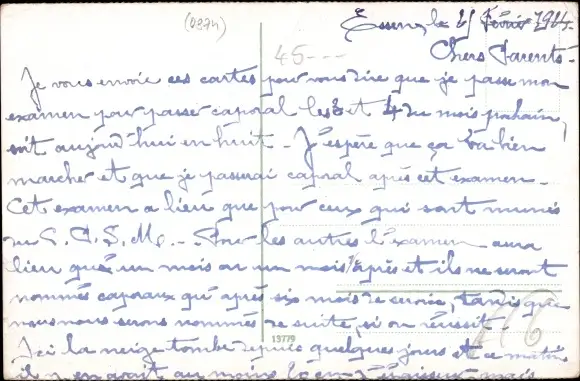 (0274)
le 25 Février 1914.
45---
Chers Parents.
Je vous envoie ces cartes pour vous dire que je passe mon
examen pour passer caporal les 3 et 4 du mois prochain,
soit aujourd'hui en huit. J'espère que ça va bien
marcher et que je passerai caporal après cet examen.
Cet examen a lieu que pour ceux qui sont munis
du C. A. S. M. - Pour les autres l'examen aura
lieu que un mois ou un mois 1/2 après et ils ne seront
nommés caporaux qu'après six mois de service, tandis que
nous nous serons nommés de suite, si on réussit.
416
13779
Ici la neige tombe depuis quelques jours et ce matin
il y en avait au moins d'épaisseur mais